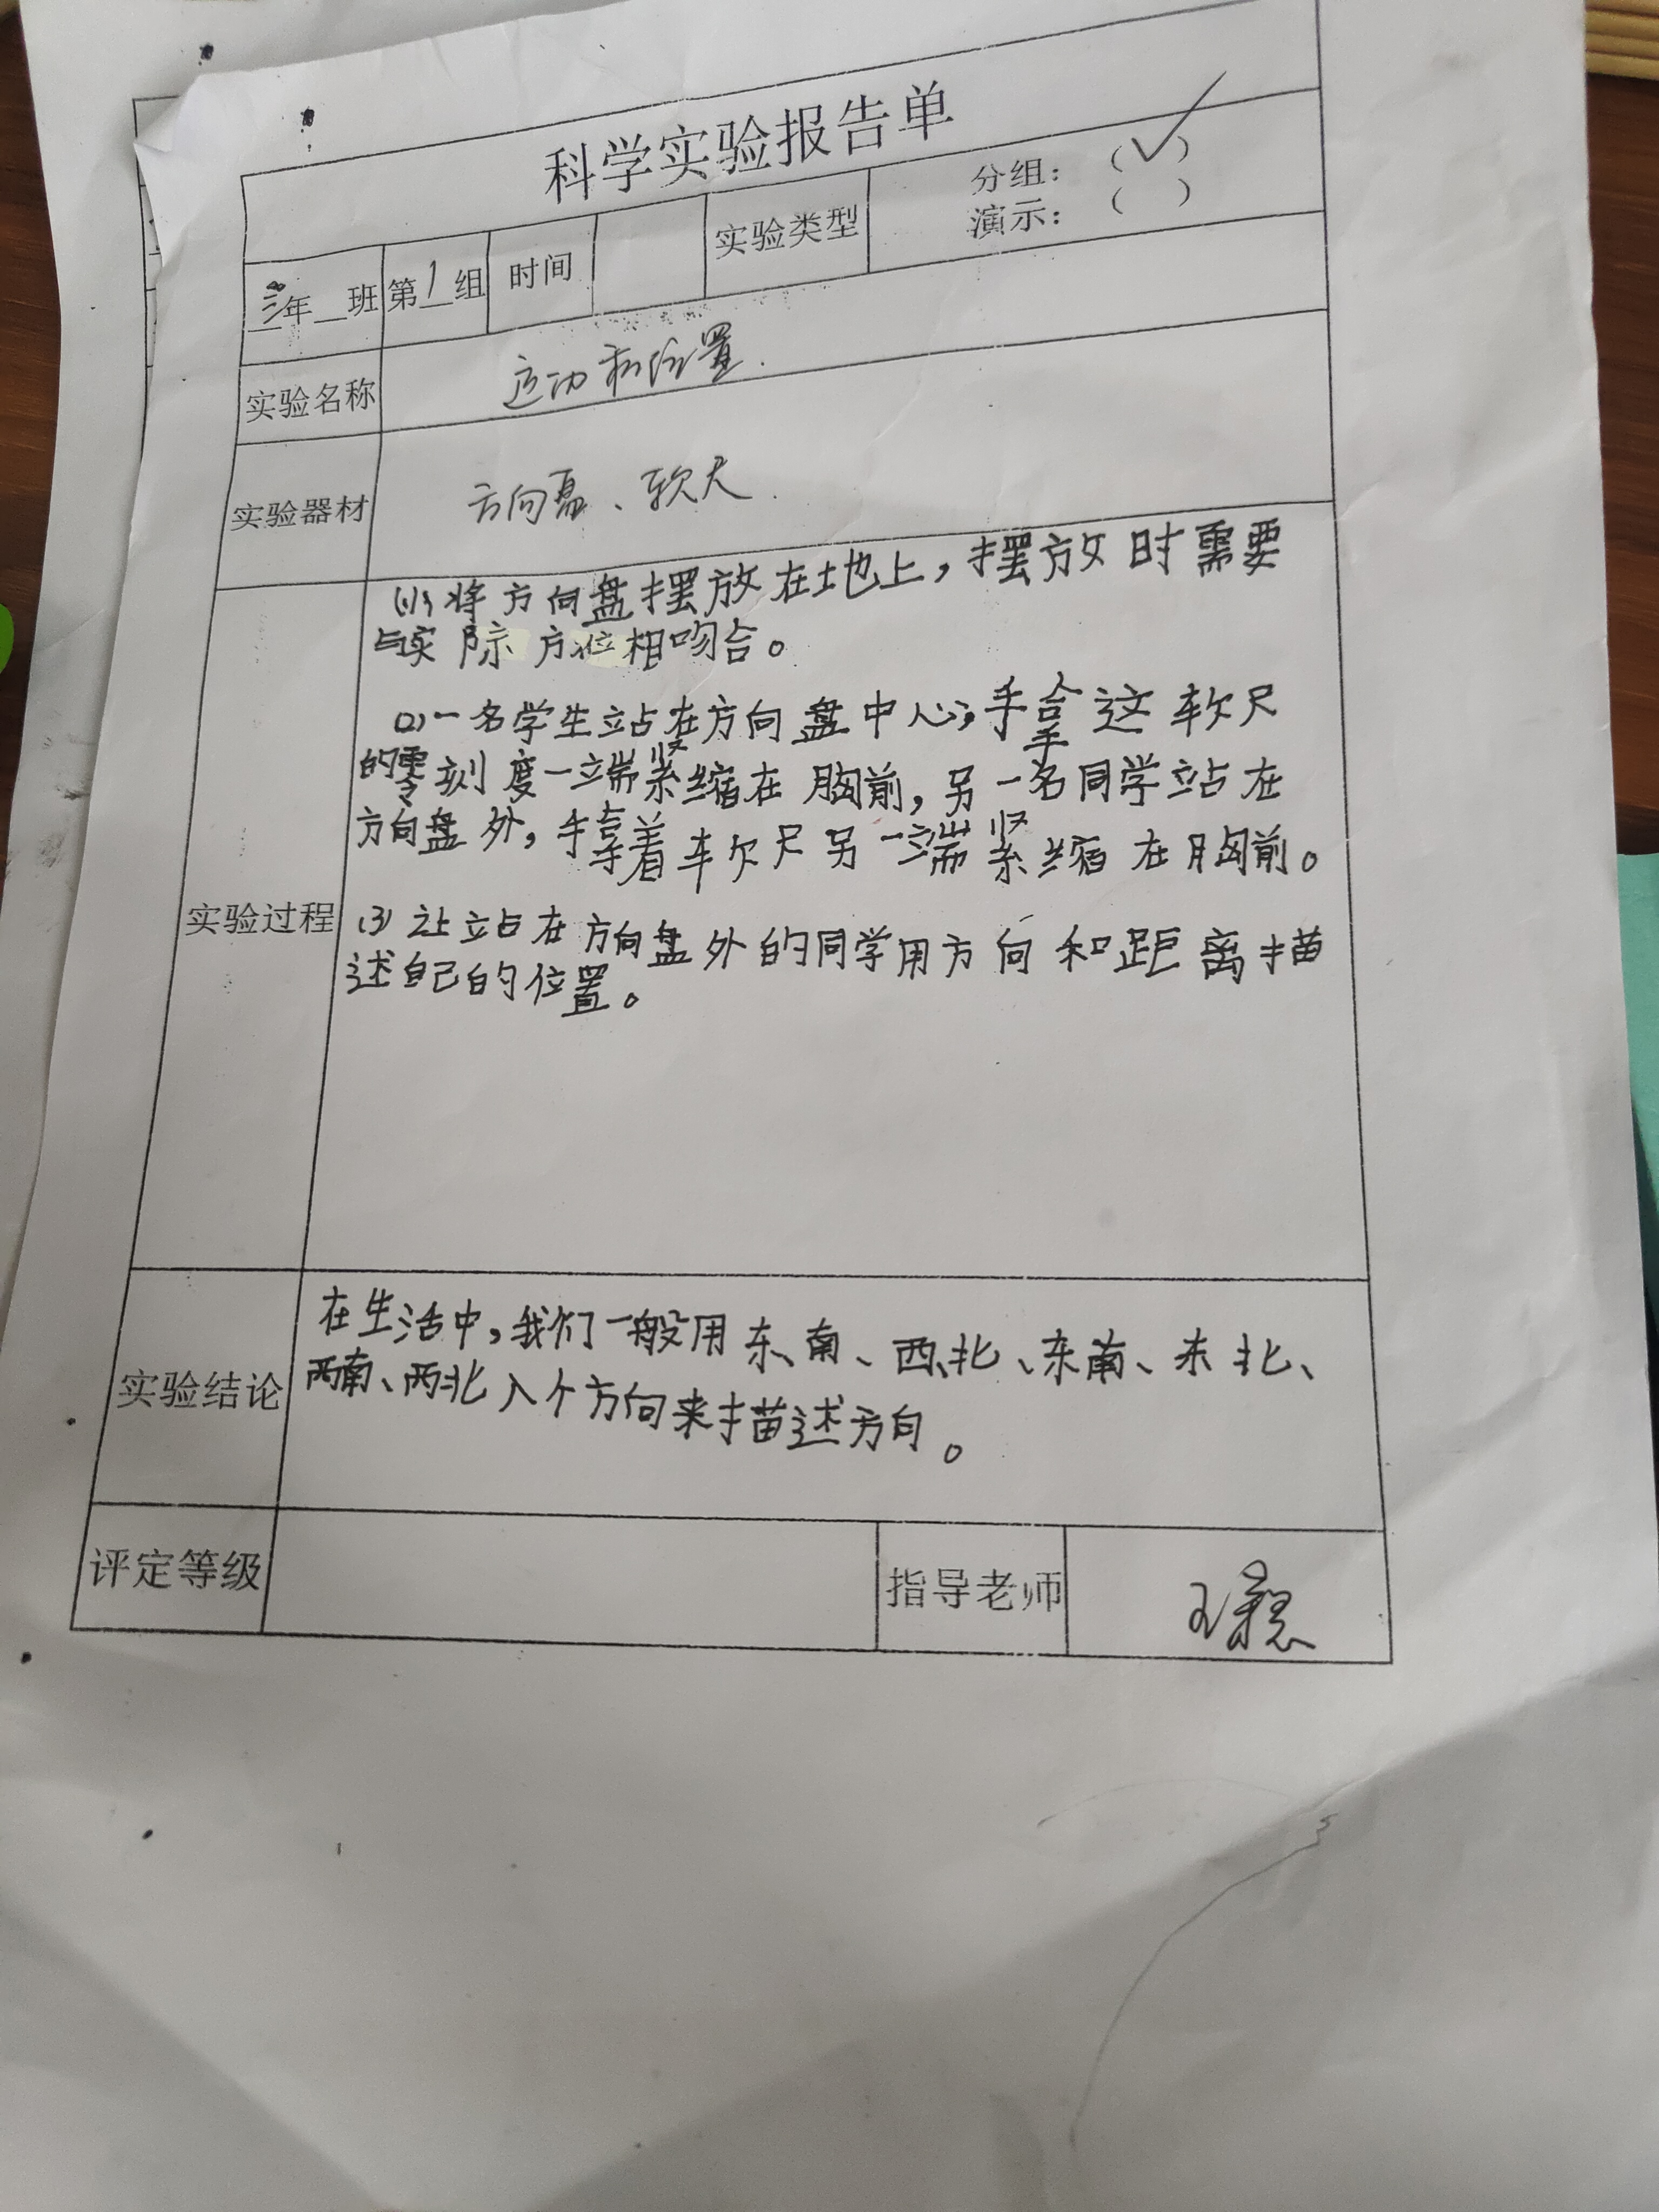 科学实验报告单
三年__班 第1组 时间 实验类型 分组：（✓）
演示：（ ）
实验名称 运动和位置.
实验器材 方向盘、软尺.
实验过程
(1)将方向盘摆放在地上，摆放时需要
与实际方位相吻合。
(2)一名学生站在方向盘中心，手拿这软尺
的零刻度一端紧缩在胸前，另一名同学站在
方向盘外，手拿着软尺另一端紧缩在胸前。
(3)让站在方向盘外的同学用方向和距离描
述自己的位置。
实验结论
在生活中，我们一般用东、南、西、北、东南、东北、
西南、西北八个方向来描述方向。
评定等级 指导老师